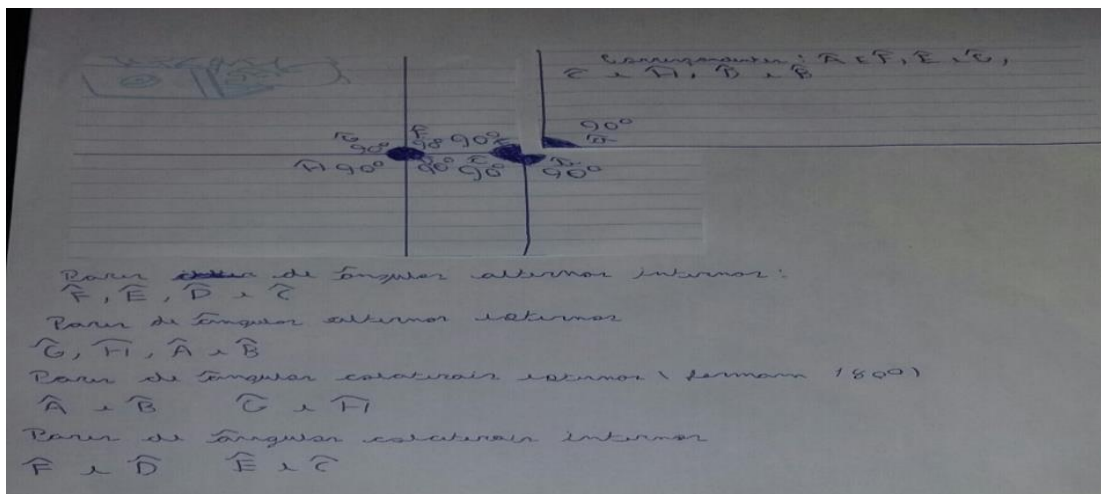 Correspondentes: Â e F̂, Ê e Ĝ,
Ĉ e Ĥ, D̂ e B̂
90°
Ĝ F̂ 90°
90°
Ĥ 90° 90° Ĉ 90° 90°
Pares de ângulos alternos internos:
F̂, Ê, D̂ e Ĉ
Pares de ângulos alternos externos
Ĝ, Ĥ, Â e B̂
Pares de ângulos colaterais externos (formam 180°)
Â e B̂ Ĝ e Ĥ
Pares de ângulos colaterais internos
F̂ e D̂ Ê e Ĉ